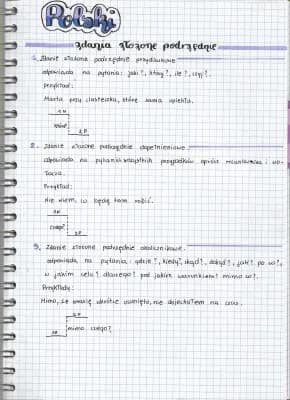 Polski
zdania złożone podrzędnie
1. Zdanie złożone podrzędnie przydawkowe.
odpowiada na pytania: jaki?, który?, ile?, czyj?.
przykład:
Marta
ciasteczka, które sama upiekła.
która?
2. Zdanie złożone podrzędnie dopełnieniowe.
odpowiada na pytania wszystkich przypadków oprócz mianownika i wo-
łacza.
Przykład:
Nie wiem, co będę tam robić.
czego?
3. Zdanie złożone podrzędnie okolicznikowe.
odpowiada na pytania: gdzie?, kiedy?, skąd?, dokąd?, jak?, po co?,
w jakim celu?, dlaczego?, pod jakim warunkiem?, mimo co?.
Przykłady:
Mimo, że
nie dojechałem na czas.
mimo czego?